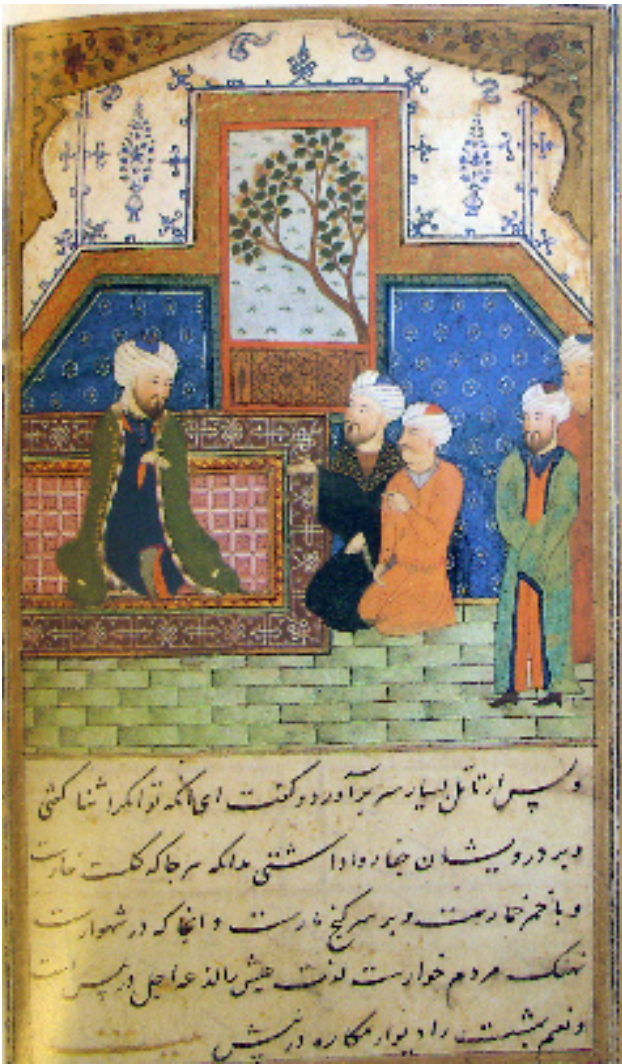 و پس از تامل بسیار سر برآورد و گفت ای آنکه توانکرا ثنا گفتی
و بر درویشان جفا روا داشتی بدانکه هر جا که گلست خارست
و با خمر خمارست و بر سر گنج مارست و انجا که در شهوارست
نهنک مردم خوارست لذت عیش را لدغه اجل در پس است
و نعیم بهشت را دیوار مکاره در پیش بیت